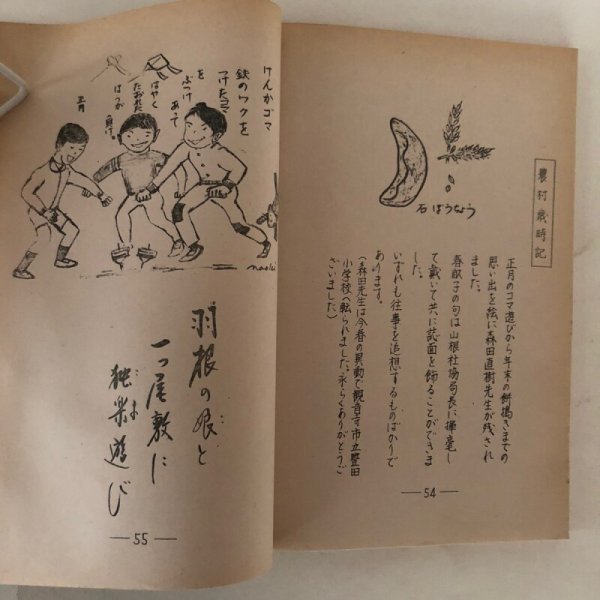 農村歳時記
石ぼうちょう
正月のコマ遊びから年末の餅搗きまでの
思い出を絵に森田直樹先生が残され
ました。
春子の句は山根社協局長に揮毫し
て戴いて共に誌面を飾ることができま
した。
いずれも往事を追想するものばかりで
あります。
(森田先生は今春の異動で観音寺市立豊田
小学校へ転られました。永らくありがとうご
ざいました)
—54—
けんかゴマ
鉄のワクを
つけたコマ
を
ぶつけ あて
はやく
たおれた
ほうが
負け。
正月
naoki
羽根の娘と
一つ屋敷に
独楽遊び
—55—